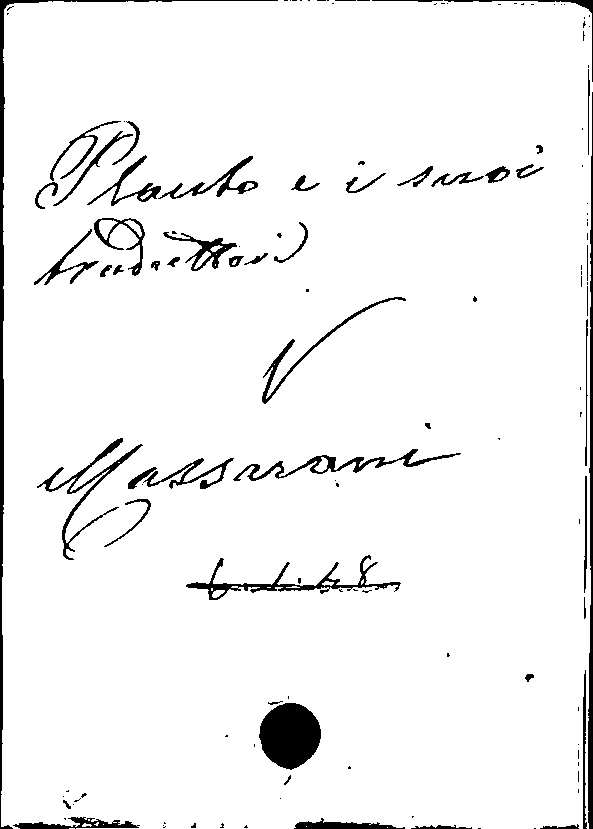 Plauto e i suoi
traduttori
V
Massarani
6.1.48